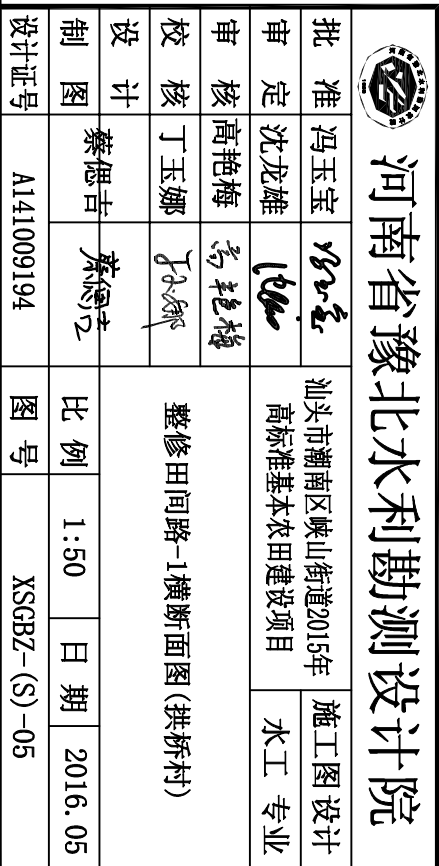 河南省豫北水利勘测设计院
批 准 冯玉宝 冯玉宝 汕头市潮南区峡山街道2015年 施工图 设计
审 定 沈龙雄 高标准基本农田建设项目 水工 专业
审 核 高艳梅 高艳梅 整修田间路-1横断面图(拱桥村)
校 核 丁玉娜 丁玉娜
设 计 蔡偲吉 蔡偲吉
制 图 比 例 1:50 日 期 2016.05
设计证号 A141009194 图 号 XSGBZ-(S)-05